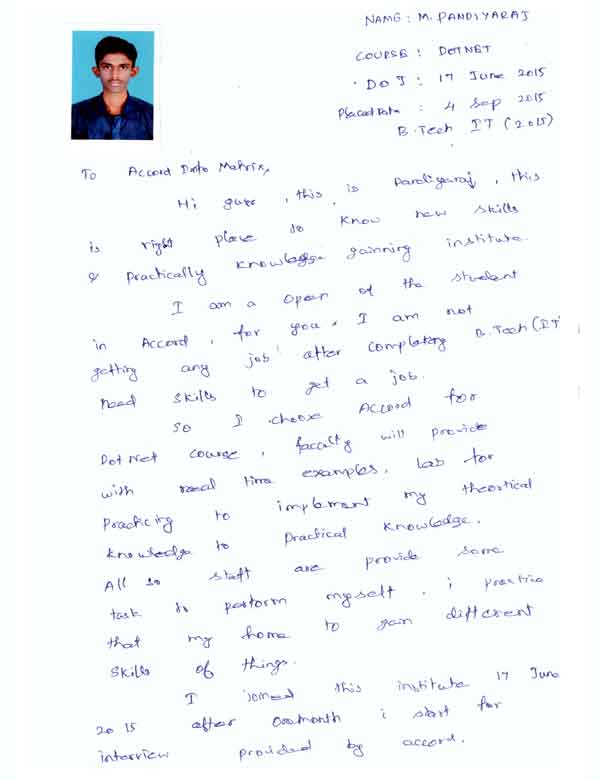 NAME : M. PANDIYARAJ
COURSE : DOTNET
DOJ : 17 June 2015
Placed Date : 4 Sep 2015
B.Tech IT (2015)
To Accord Data Matrix,
Hi guys, this is Pandiyaraj, this
is right place to know new skills
& practically knowledge gaining institute.
I am a open of the student
in Accord, for you, I am not
getting any job after completing B.Tech (IT)
need skills to get a job.
so I choose Accord for
Dot Net course, faculty will provide
with real time examples, Lab for
practicing to implement my theortical
knowledge to practical knowledge.
All so staff are provide some
task to perform myself. i practice
that my home to gain different
skills of things.
I joined this institute 17 June
2015 after onemonth i start for
interview provided by accord.